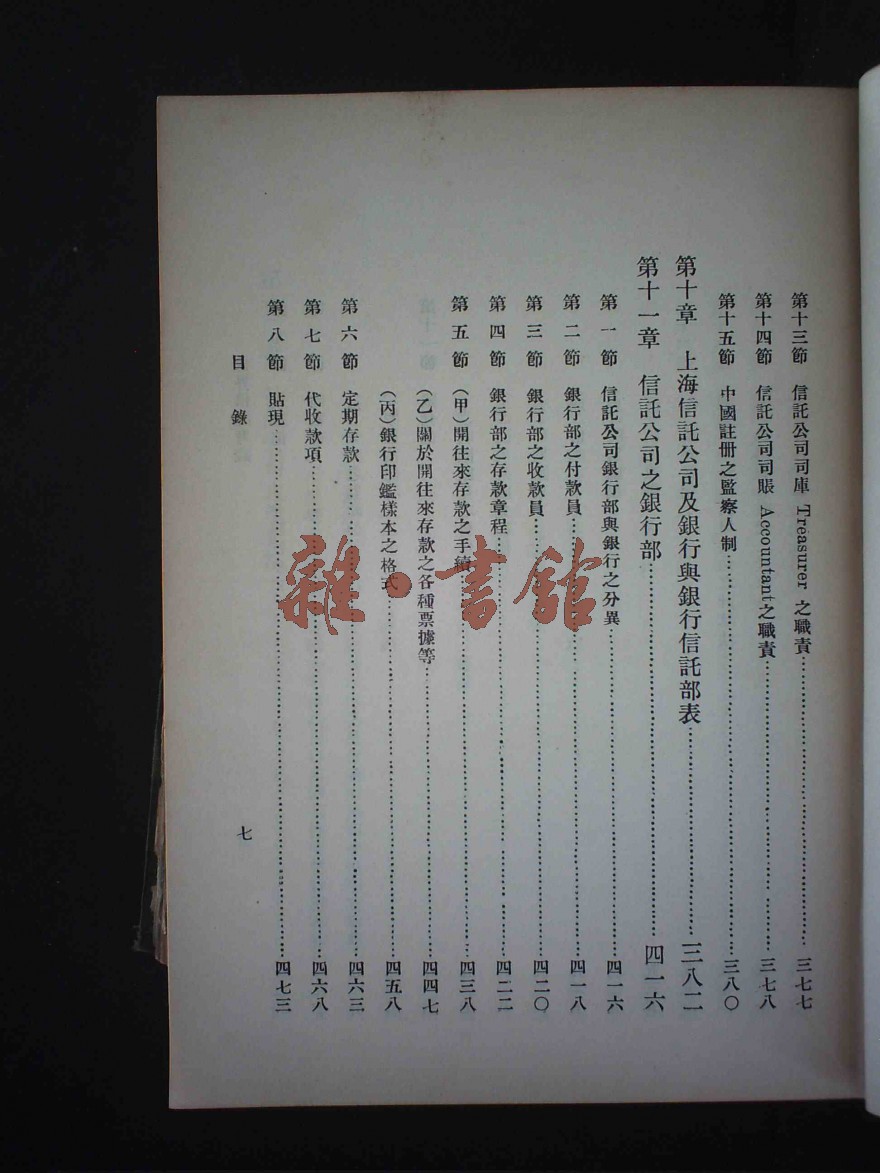 第十三節 信託公司司庫 Treasurer 之職責……三七七
第十四節 信託公司司賬 Accountant之職責……三七八
第十五節 中國註册之監察人制……三八〇
第十章 上海信託公司及銀行與銀行信託部表……三八二
第十一章 信託公司之銀行部……四一六
第一節 信託公司銀行部與銀行之分異……四一六
第二節 銀行部之付款員……四一八
第三節 銀行部之收款員……四二〇
第四節 銀行部之存款章程……四二二
第五節 (甲)開往來存款之手續……四三八
(乙)關於開往來存款之各種票據等……四四七
(丙)銀行印鑑樣本之格式……四五八
第六節 定期存款……四六三
第七節 代收款項……四六八
第八節 貼現……四七三
目錄 七
雜·書館